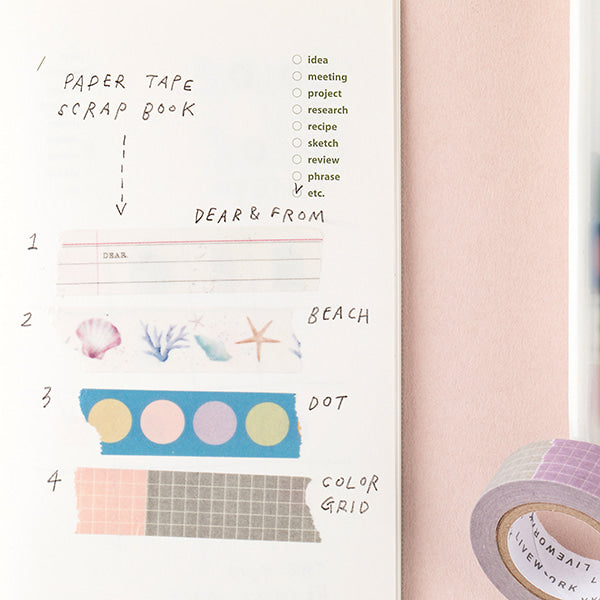 PAPER TAPE
SCRAP BOOK
idea
meeting
project
research
recipe
sketch
review
phrase
etc.
DEAR & FROM
1
DEAR.
2
BEACH
3
DOT
4
COLOR
GRID
LIVEWORK
LIVEWORK